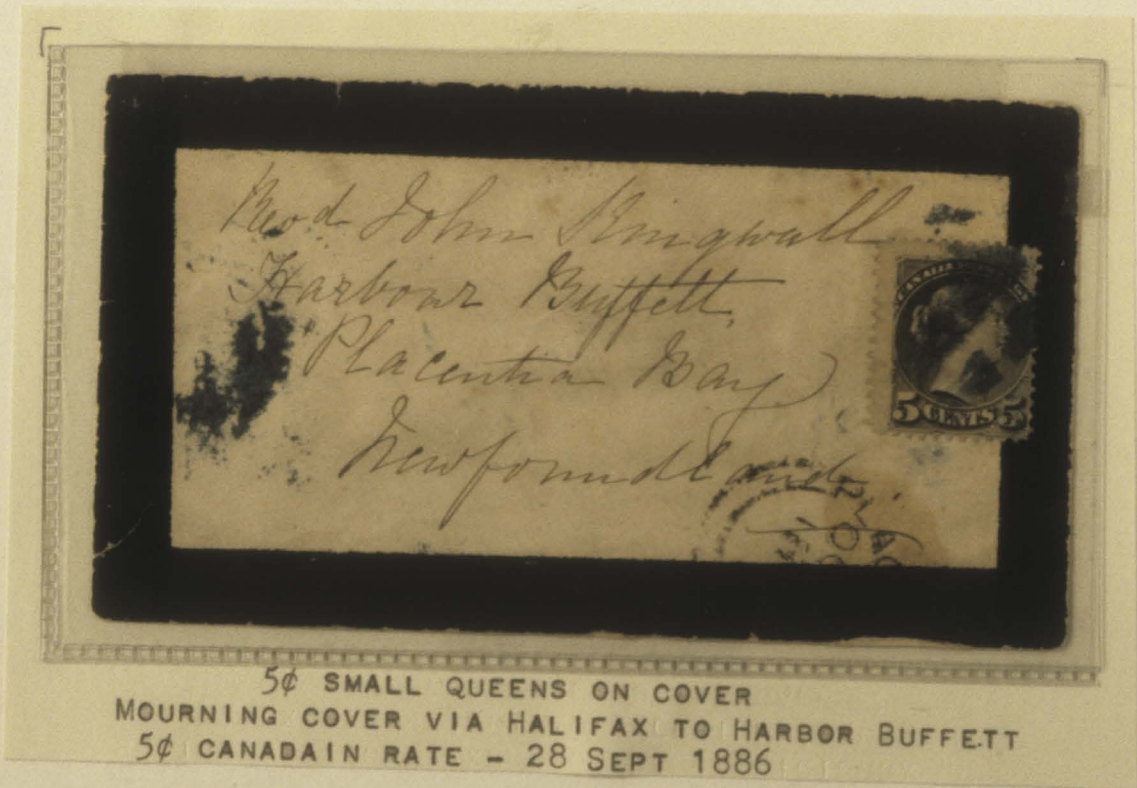 Revd John Kingwell
Harbour Buffett
Placentia Bay
Newfoundland.
5 CENTS 5
5¢ SMALL QUEENS ON COVER
MOURNING COVER VIA HALIFAX TO HARBOR BUFFETT
5¢ CANADAIN RATE - 28 SEPT 1886